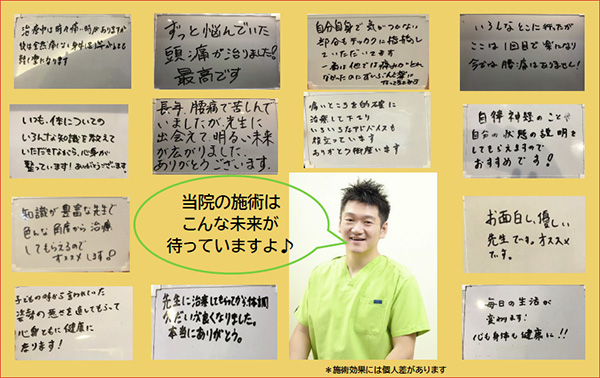 治療中は時々痛い時がありますが
後は全然痛くない身体に
軽く变わります
ずっと悩んでいた
頭痛が治りました!
最高です
自分自身で気がつかない
部分もテックナに指摘し
ていただいてます
一番は他では痛みがとれ
なかったのに
いろんなとこに行ったが
ここは1回目で楽になり
今では腰痛はありません!
いつも、体についての
いろんな知識を教えて
いただきながら、心身が
整っています!ありがとうございます
長年、腰痛で苦しんで
いましたが、先生に
出会えて明るい未来
が広がりました。
ありがとうございます.
痛いところを的確に
治療して下さり
いろいろなアドバイスも
役立っています
ありがとう御座います
自律神経のことで
自分の状態の説明を
してもらえますので
おすすめです!
知識が豊富な先生で
色んな角度から治療
してもらえるので
オススメします。
当院の施術は
こんな未来が
待っていますよ♪
お面白し、優しい
先生です。オススメ
です。
子どもの時から言われていた
姿勢の悪さを直してもらって
心身ともに健康に
なります!
先生に治療してもらってから体調
がだいぶ良くなりました。
本当にありがとう。
毎日の生活が
変わります!
心も身体も健康に!!
＊施術効果には個人差があります